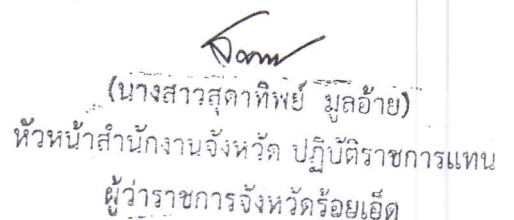 (นางสาวสุดาทิพย์ มูลอ้าย)
หัวหน้าสำนักงานจังหวัด ปฏิบัติราชการแทน
ผู้ว่าราชการจังหวัดร้อยเอ็ด